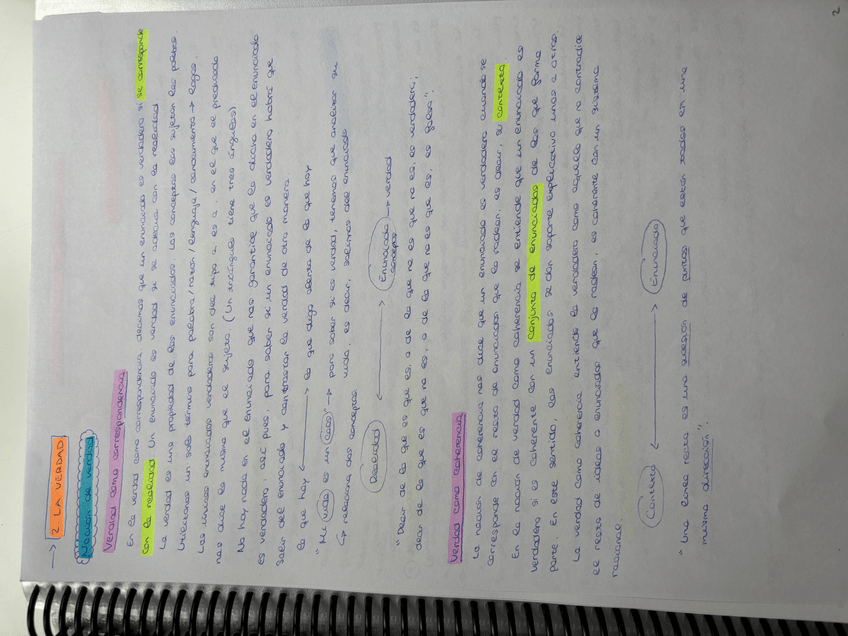 2
→ 2. LA VERDAD
Noción de verdad
Verdad como correspondencia
En la verdad como correspondencia decimos que un enunciado es verdadero si se corresponde
con la realidad. Un enunciado es verdad si se adecua con la realidad.
La verdad es una propiedad de los enunciados. Los conceptos los sujetan las palabras.
Utilizamos un solo término para palabra/razón/lenguaje/conocimiento → logos.
Los únicos enunciados verdaderos son del tipo a es a, en el que el predicado
nos dice lo mismo que el sujeto (Un triángulo tiene tres ángulos)
No hay nada en el enunciado que nos garantice que lo dicho en el enunciado
es verdadero, así pues, para saber si un enunciado es verdadero habrá que
salir del enunciado y contrastar la verdad de otra manera.
lo que hay ⟷ lo que digo acerca de lo que hay
"Mi vida es un caos" → para saber si es verdad, tenemos que analizar su
vida, es decir, salimos del enunciado
↳ relaciona dos conceptos
Realidad ⟷ Enunciado → verdad
conceptos
"Decir de lo que es que es, o de lo que no es que no es, es verdadero;
decir de lo que es que no es, o de lo que no es que es, es falso".
Verdad como coherencia
La noción de coherencia nos dice que un enunciado es verdadero cuando se
corresponde con el resto de enunciados que lo rodean, es decir, su contexto
En la noción de verdad como coherencia se entiende que un enunciado es
verdadero si es coherente con un conjunto de enunciados de los que forma
parte. En este sentido, los enunciados se dan soporte explicativo unos a otros.
La verdad como coherencia entiende lo verdadero como aquello que no contradice
el resto de ideas o enunciados que lo rodean, es coherente con un sistema
racional.
Contexto ⟷ Enunciado
"Una línea recta es una sucesión de puntos que están todos en una
misma dirección".